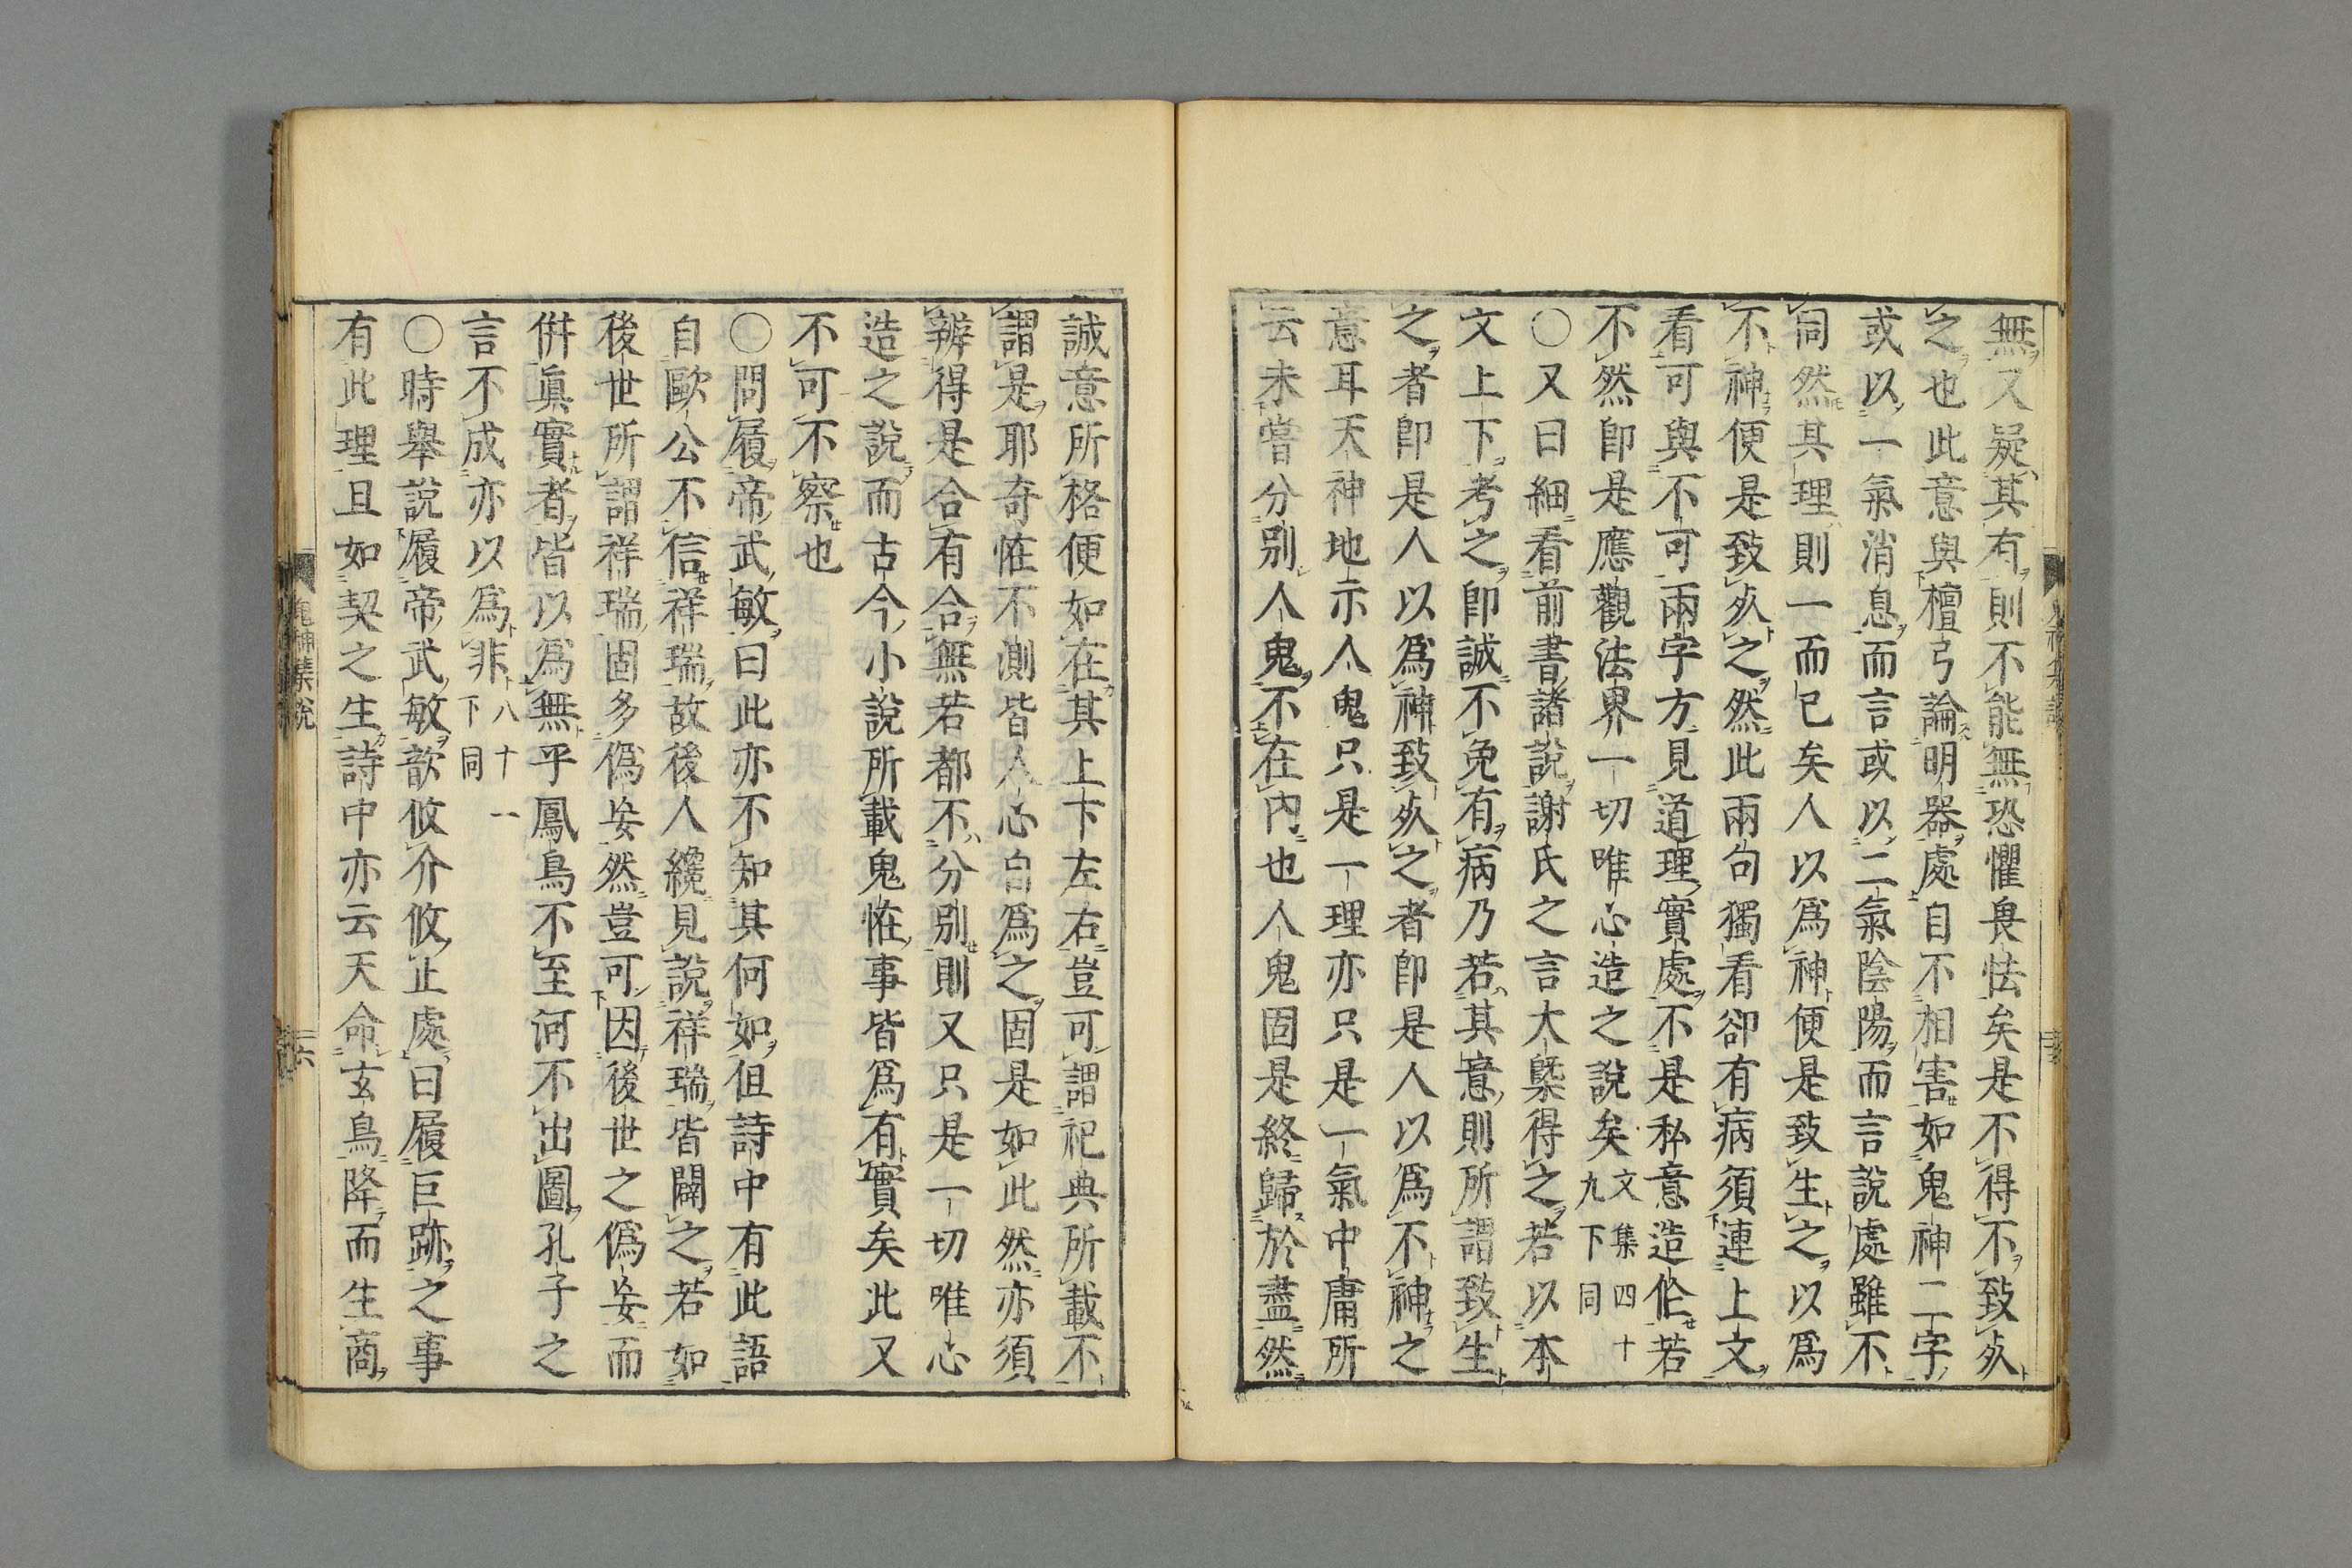 無又疑其有則不能無恐懼畏怯矣是不得不致㱙
之也此意與檀弓論明器處自不相害如鬼神二字
或以一氣消息而言或以二氣陰陽而言說處雖不
同然其理則一而已矣人以爲神便是致生之以爲
不神便是致㱙之然此兩句獨看卻有病須連上文
看可與不可兩字方見道理實處不是私意造作若
不然卽是應觀法界一切唯心造之說矣文集四十
九下同
○又曰細看前書諸說謝氏之言大槩得之若以本
文上下考之卽誠不免有病乃若其意則所謂致生
之者卽是人以爲神致㱙之者卽是人以爲不神之
意耳天神地示人鬼只是一理亦只是一氣中庸所
云未嘗分別人鬼不在內也人鬼固是終歸於盡然
誠意所格便如在其上下左右豈可謂祀典所載不
謂是耶奇恠不測皆人心自爲之固是如此然亦須
辨得是合有合無若都不分別則又只是一切唯心
造之說而古今小說所載鬼恠事皆爲有實矣此又
不可不察也
○問履帝武敏曰此亦不知其何如但詩中有此語
自歐公不信祥瑞故後人纔見說祥瑞皆闢之若如
後世所謂祥瑞固多僞妄然豈可因後世之僞妄而
倂眞實者皆以爲無乎鳳鳥不至河不出圖孔子之
言不成亦以爲非八十一
下同
○時舉說履帝武敏歆攸介攸止處曰履巨跡之事
有此理且如契之生詩中亦云天命玄鳥降而生商
鬼神集說
六